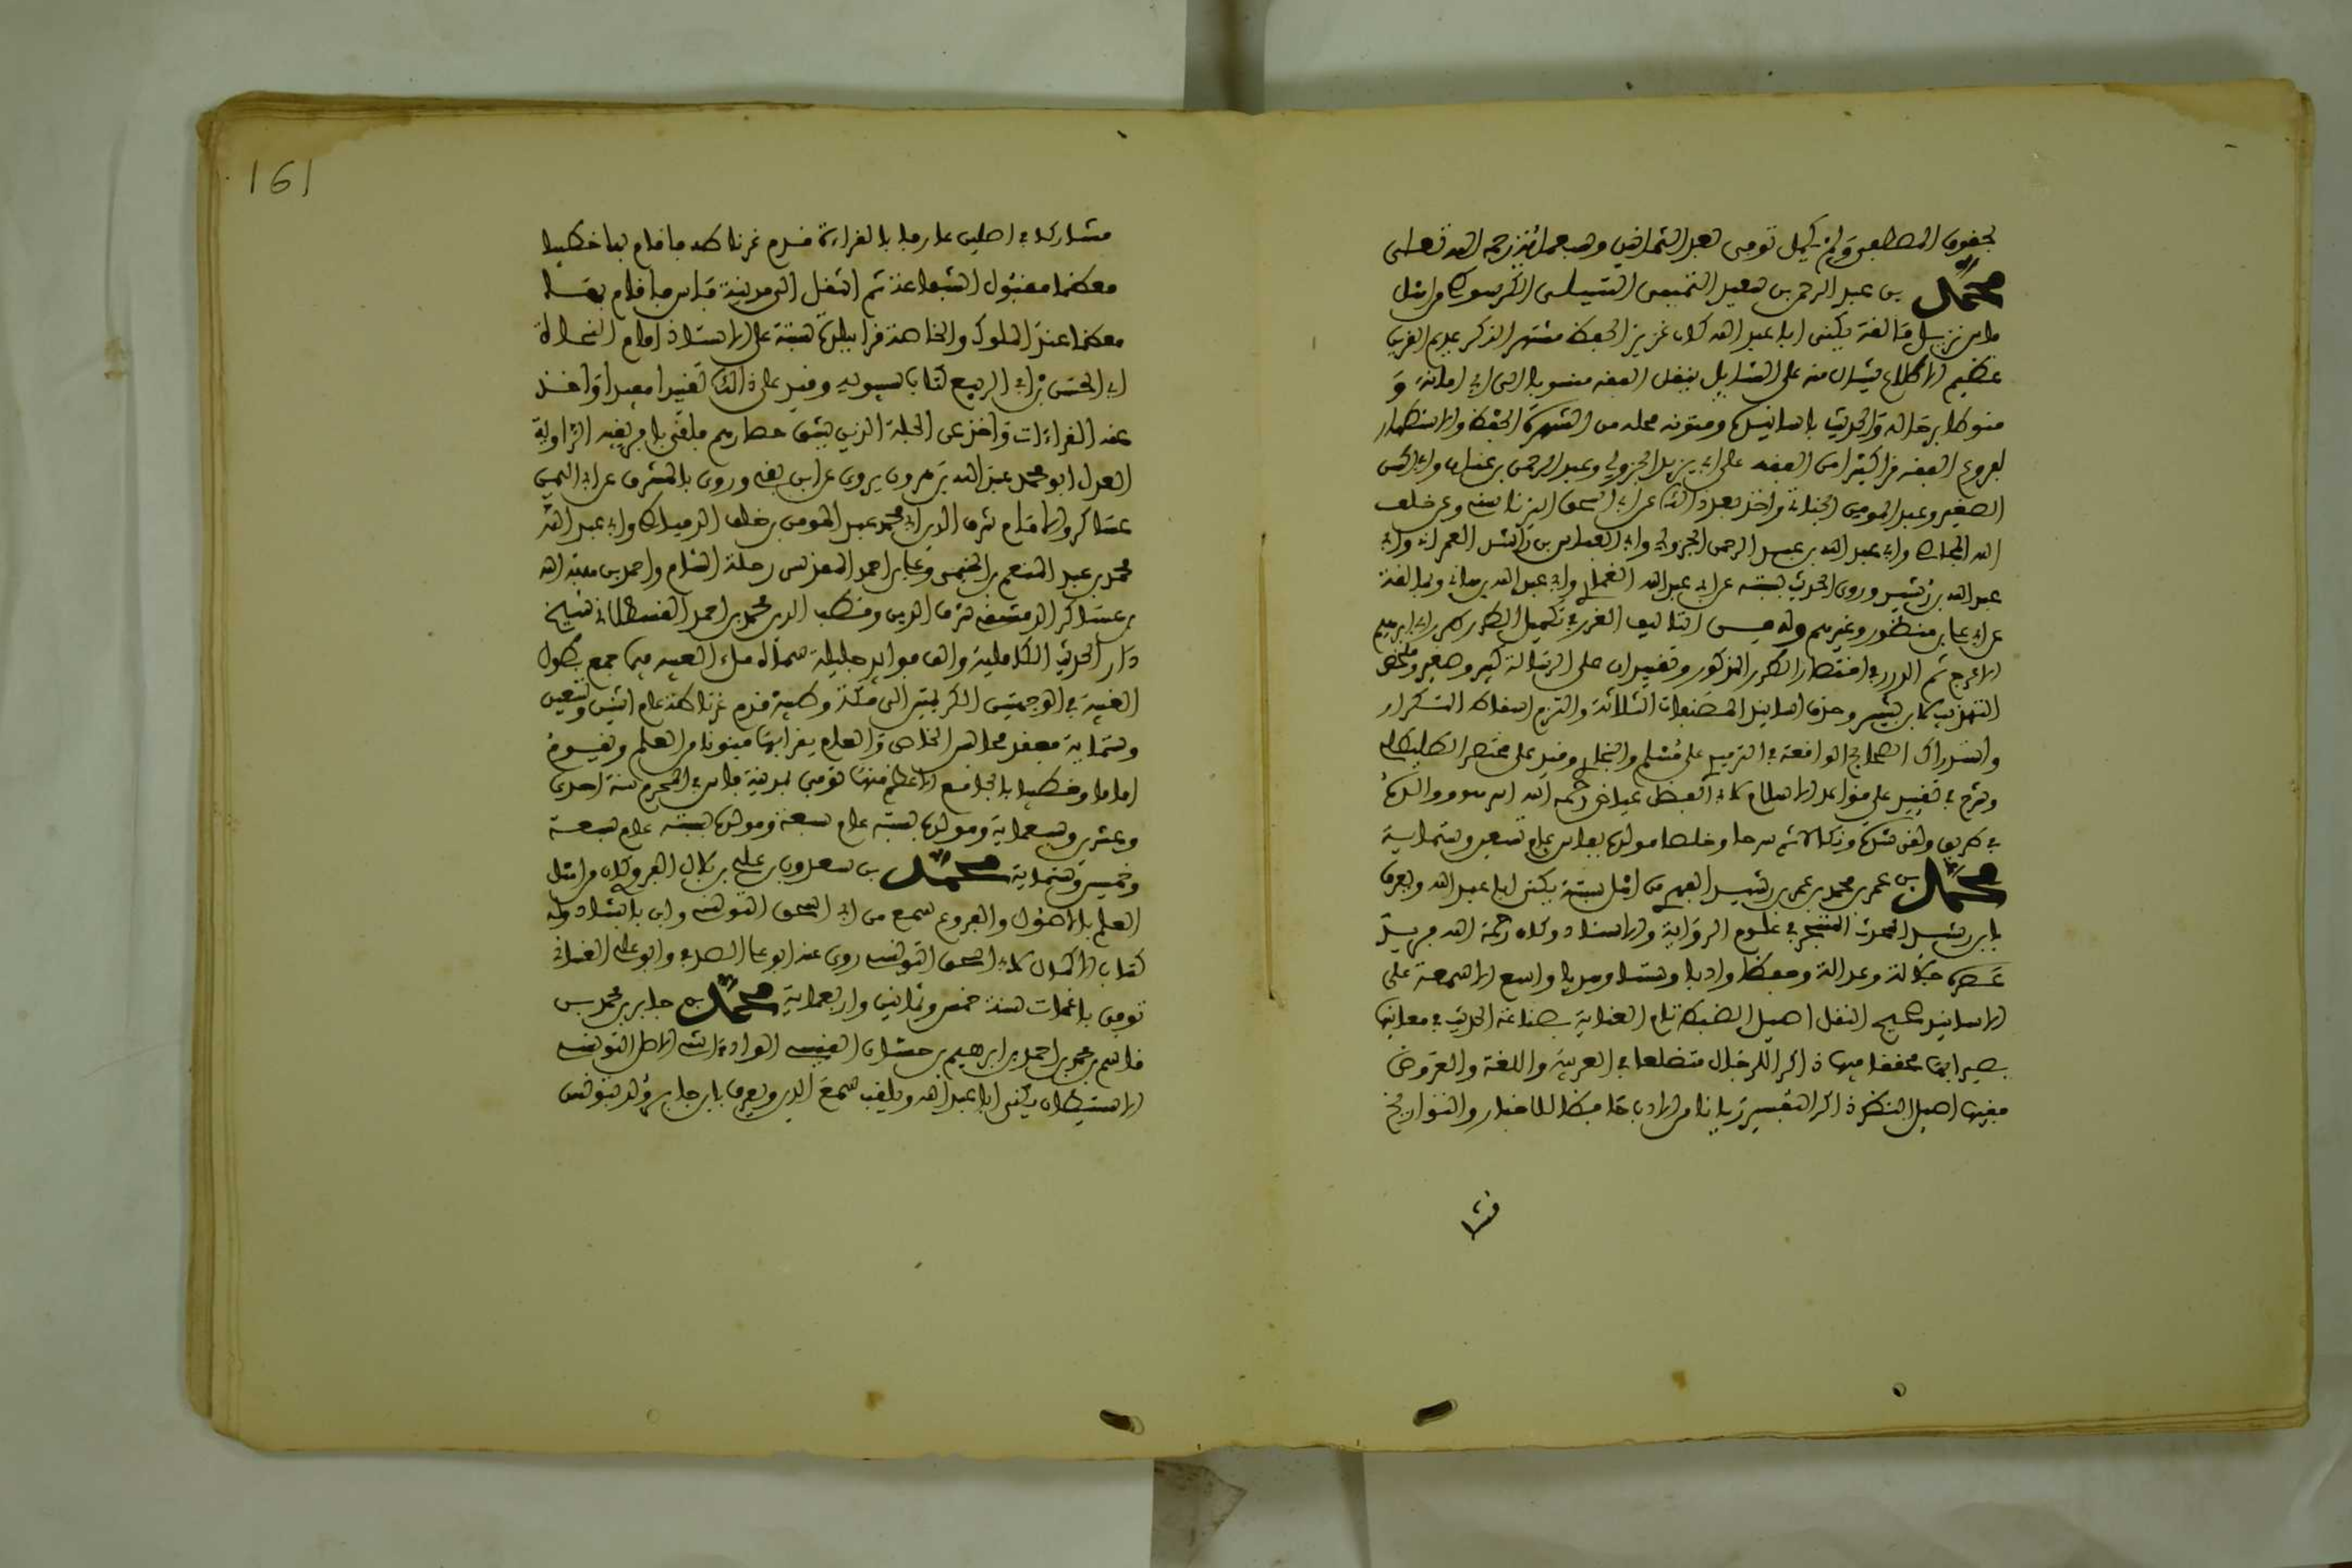 بحقوق المصطفى ولم يكمل توفى بعد الثمانين وسبعمائة رحمه الله تعالى
محمد بن عبد الرحمن بن سعيد التميمى التسيلى الكرسوطى من اهل
فاس نزيل مالقة يكنى ابا عبد الله كان غزير الحفظ متبحر الذكر عديم القرين
عظيم الاطلاع ينثال منه على السائل بنقل الفقه منسوبا الى امانة و
منوطا برجاله والحديث باسانيده ومتونه محله من الشهرة بالحفظ والاستظهار
لفروع الفقه قرا كثيرا من الفقه على ابى يزيد الجزولي وعبد الرحمن بن عفان وابى الحسن
الصغير وعبد المومن الجناتى واخذ بعد ذلك عن ابى اسحق اليزناسنى وعن خلف
الله المجاصى وابى عبد الله بن عبد الرحمن الجزولي وابى العباس بن راشد العمرانى وابى
عبد الله بن رشيد وروى الحديث بسبتة عن ابى عبد الله الغمارى وابى عبد الله بن هانى وبمالقة
عن ابى عمرو بن منظور وغيرهم وله من التاليف الغرر فى تكميل الطرر طرر ابى ابرهيم
الاعرج ثم الدرر فى اختصار الطرر المذكور وتقييدان على الرسالة كبير وصغير ولخص
التهذيب لابن بشير وحذف اسانيد المصنفات الثلاثة والتزم اسقاط التكرار
واستدراك الصحاح الواقعة فى الترمذى على مسلم والبخارى وقيد على مختصر الطليطلى
وشرع فى تقييد على قواعد الاسلام لابى الفضل عياض رحمه الله
مولده بفاس عام تسعين وستماية
محمد بن عمر بن محمد بن عمر بن رشيد الفهرى من اهل سبتة يكنى ابا عبد الله ويعرف
بابن رشيد المحدث المتبحر فى علوم الرواية والاسناد وكان رحمه الله فريد
عصره جلالة وعدالة وحفظا وادبا وسمتا وهديا واسع الاسمعة عالى
الاسانيد صحيح النقل اصيل الضبط تام العناية بصناعة الحديث قيما عليها
بصيرا بها محققا فيها ذاكرا للرجال متضلعا فى العربية واللغة والعروض
فقيها اصيل النظر ذاكرا للتفسير ريانا من الادب حافظا للاخبار والتواريخ
مشا
161
مشاركا فى الاصلين عارفا بالقراءة قدم غرناطة فاقام بها خطيبا
معظما مقبول الشفاعة ثم انتقل الى مدينة فاس فاقام بها
معظما عند الملوك والخاصة قرا ببلده سبتة على الاستاذ امام النحاة
ابى الحسن بن ابى الربيع كتاب سيبويه وقيد على ذلك تقييدا مفيدا واخذ
عنه القراءات واخذ عن الجلة الذين يشق حصارهم فلقى بافريقية الراوية
العدل ابو محمد عبد الله بن هرون يروى عن ابن بقى وروى بالمشرق عن ابى اليمن
عساكر والامام شرف الدين ابى محمد عبد المومن بن خلف الدمياطى وابى عبد الله
محمد بن عبد المنعم بن الخيمى وعلى بن احمد المقدسى رحلة الشام واحمد بن هبة الله
بن عساكر الدمشقى شرف الدين وقطب الدين محمد بن احمد القسطلانى شيخ
دار الحديث الكاملية والف فوائد جليلة سماها ملء العيبة فيما جمع بطول
الغيبة فى الوجهتين الكريمتين الى مكة وطيبة قدم غرناطة عام اثنين وتسعين
وستماية فعقد مجالس للخاص والعام يقرا بها فنونا من العلم وتقدم
اماما وخطيبا بالجامع الاعظم منها توفى بمدينة فاس فى المحرم سنة احدى
وعشرين وسبعماية ومولده بسبتة عام سبعة
وخمسين وستماية محمد بن سعدون بن علي بن بلال القروى كان من اهل
العلم بالاصول والفروع سمع من ابى اسحق التونسى وابن بابشاد وله
كتاب الاكمال لابى اسحق التونسى روى عنه ابو على الصدفى وابو على الغسانى
توفى باغمات سنة خمس وثمانين واربعماية محمد بن جابر بن محمد بن
قاسم بن محمد بن احمد بن ابرهيم بن حسان القيسى الوادى اشى الاصل التونسى
الاستيطان يكنى ابا عبد الله ويلقب شمس الدين ويعرف بابن جابر ولد بتونس